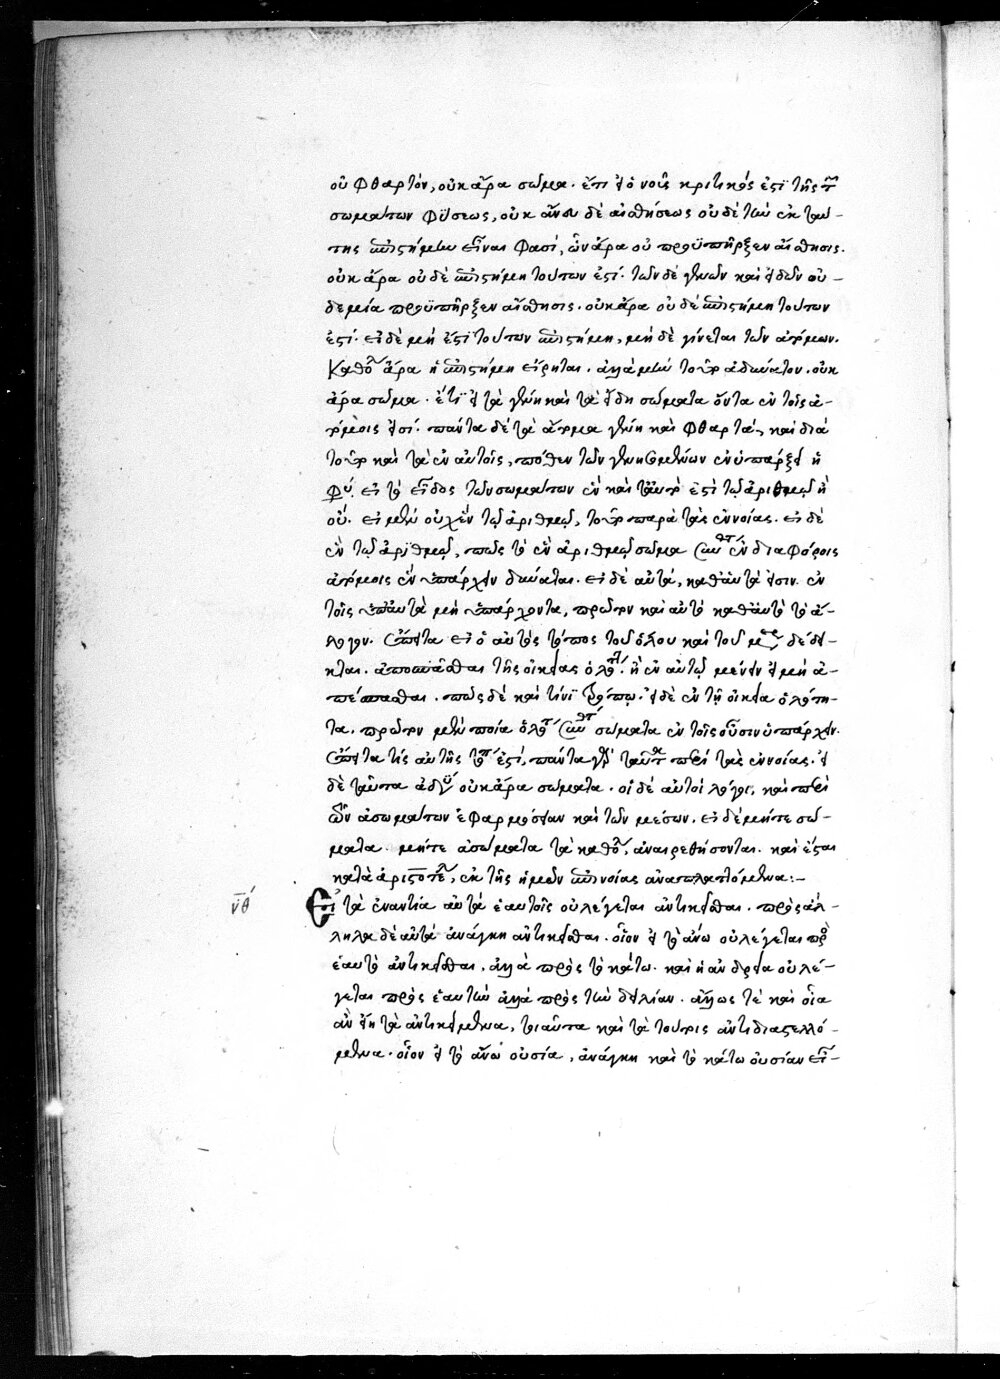 οὐ φθαρτόν, οὐκ ἄρα σῶμα. ἔτι εἰ ὁ νοῦς κριτικός ἐστι τῆς τῶν
σωμάτων φύσεως, οὐκ ἄνευ δὲ αἰσθήσεως οὐδὲ τὴν ἐκ ταύ-
της ἐπιστήμην εἶναι φασί, ὧν ἄρα οὐ προϋπῆρξεν αἴσθησις.
οὐκ ἄρα οὐδὲ ἐπιστήμη τούτων ἐστί. τῶν δὲ γενῶν καὶ εἰδῶν οὐ-
δεμία προϋπῆρξεν αἴσθησις. οὐκ ἄρα οὐδὲ ἐπιστήμη τούτων
ἐστί. εἰ δὲ μή ἐστι τούτων ἐπιστήμη, μὴ δὲ γίνεται τῶν ἀτόμων.
καθόλου ἄρα ἡ ἐπιστήμη εἴρηται. ἀλλὰ μὴν τοῦτο ἀδύνατον. οὐκ
ἄρα σῶμα. ἔτι εἰ τὰ γένη καὶ τὰ εἴδη σώματα ὄντα ἐν τοῖς ἀ-
τόμοις εἰσί. πάντα δὲ τὰ ἄτομα γένη καὶ φθαρτά, καὶ διὰ
τοῦτο καὶ τὰ ἐν αὐτοῖς, πόθεν τῶν γενησομένων ἐνυπάρξει ἡ
φύ. εἰ τὸ εἶδος τῶν σωμάτων ἓν καὶ ταὐτό ἐστι τῷ ἀριθμῷ ἢ
οὔ. εἰ μὲν οὐχ ἓν τῷ ἀριθμῷ, τοῦτο παρὰ τὰς ἐννοίας. εἰ δὲ
ἓν τῷ ἀριθμῷ, πῶς τὸ ἓν ἀριθμῷ σῶμα ὂν ἐν διαφόροις
ἀτόμοις ἓν ὑπάρχειν δύναται. εἰ δὲ αὐτά, καθ' αὑτά εἰσιν ἐν
τοῖς ὑπ' αὐτὰ μὴ ὑπάρχοντα, πρῶτον καὶ αὐτὸ καθ' αὑτὸ τὸ ἄ-
λογον. ἔπειτα εἰ ὁ αὐτὸς τόπος τοῦ ὅλου καὶ τοῦ μέρους δέδει-
κται. ἀποσπᾶσθαι τῆς οἰκείας ὁλότητος. ἢ ἐν αὐτῷ μένειν εἰ μὴ ἀ-
πέσπασθαι. πῶς δὲ καὶ τίνι τρόπῳ. εἰ δὲ ἐν τῇ οἰκείᾳ ὁλότη-
τα. πρῶτον μὲν ποία ὁλότης σώματα ἐν τοῖς οὖσιν ὑπάρχειν.
ἔπειτα τίς αὐτῆς τόπος ἐστί, πάντα γὰρ ταῦτα περὶ τὰς ἐννοίας. εἰ
δὲ ταῦτα ἀδύνατα οὐκ ἄρα σώματα. οἱ δὲ αὐτοὶ λόγοι, καὶ περὶ
τῶν ἀσωμάτων ἐφαρμόσειαν καὶ τῶν μέσων. εἰ δὲ μήτε σώ-
ματα. μήτε ἀσώματα τὰ καθόλου, ἀναιρεθήσονται. καὶ ἔσται
κατὰ ἀριστοτέλην, ἐκ τῆς ἡμῶν ἐπινοίας ἀναπλαττόμενα:-
νθ Ὅτι τὰ ἐναντία αὐτὰ ἑαυτοῖς οὐ λέγεται ἀντικεῖσθαι. πρὸς ἄλ-
ληλα δὲ αὐτὰ ἀνάγκη ἀντικεῖσθαι. οἷον εἰ τὸ ἄνω οὐ λέγεται πρὸς
ἑαυτὸ ἀντικεῖσθαι, ἀλλὰ πρὸς τὸ κάτω. καὶ ἡ ἀνδρεία οὐ λέ-
γεται πρὸς ἑαυτὴν ἀλλὰ πρὸς τὴν δειλίαν. ἄλλως τε καὶ οἷα
ἂν εἴη τὰ ἀντικείμενα, τοιαῦτα καὶ τὰ τούτοις ἀντιδιαστελλό-
μενα. οἷον εἰ τὸ ἄνω οὐσία, ἀνάγκη καὶ τὸ κάτω οὐσίαν εἶ-